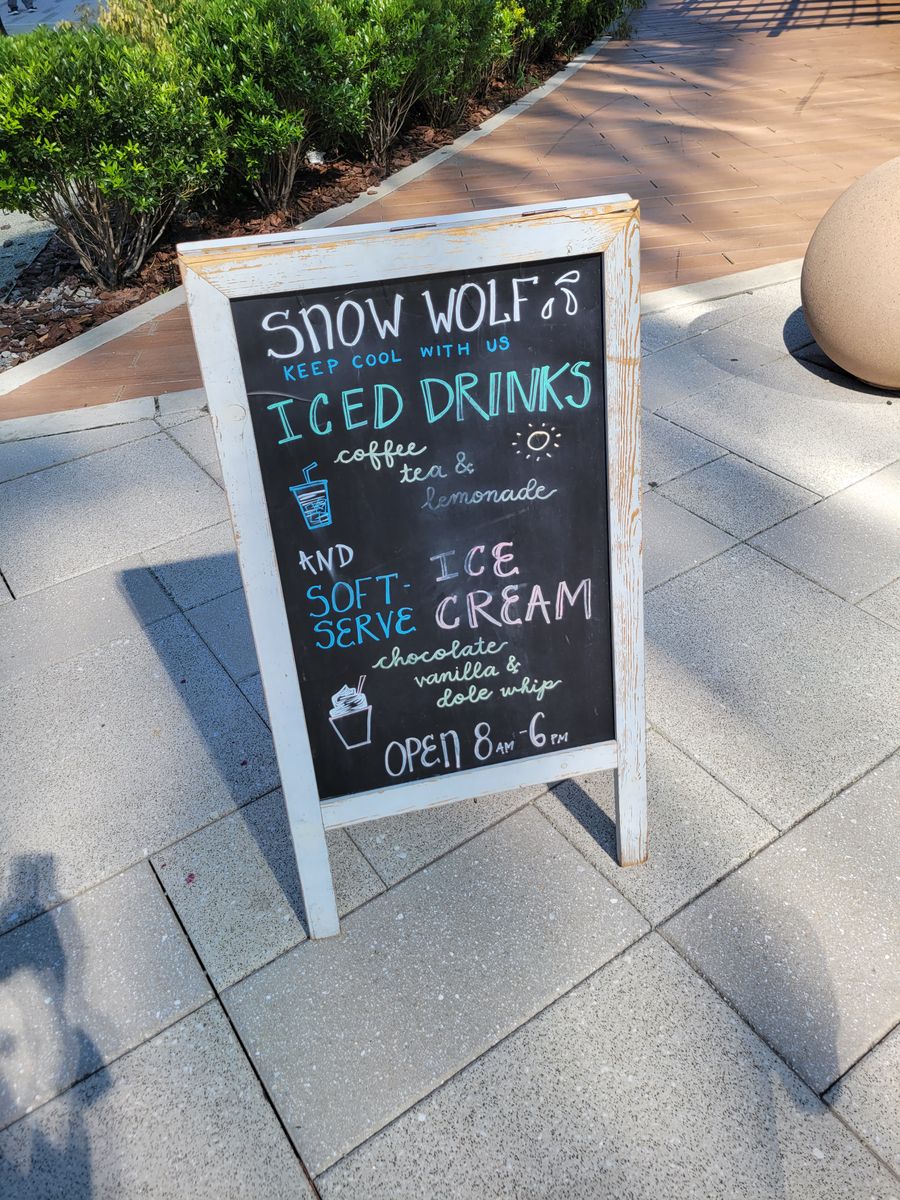 SNOW WOLF
KEEP COOL WITH US
ICED DRINKS
coffee
tea &
lemonade
AND
SOFT-
SERVE
ICE
CREAM
chocolate
vanilla &
dole whip
OPEN 8AM-6PM